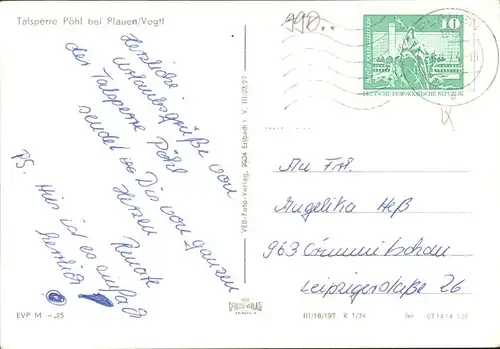 Talsperre Pöhl bei Plauen/Vogtl
990..
10
DEUTSCHE DEMOKRATISCHE REPUBLIK
Herzliche
Urlaubsgrüße von
der Talsperre Pöhl
sendet es Dir von ganzen
Herzen Renate
PS. Hier ist es einfach
herrlich
VEB-Foto-Verlag, 9934 Erlbach i. V.
An Frl.
Angelika Heß
963 Crimmitschau
Leipzigerstraße 26
EVP M -,25
III/18/197 K 1/74